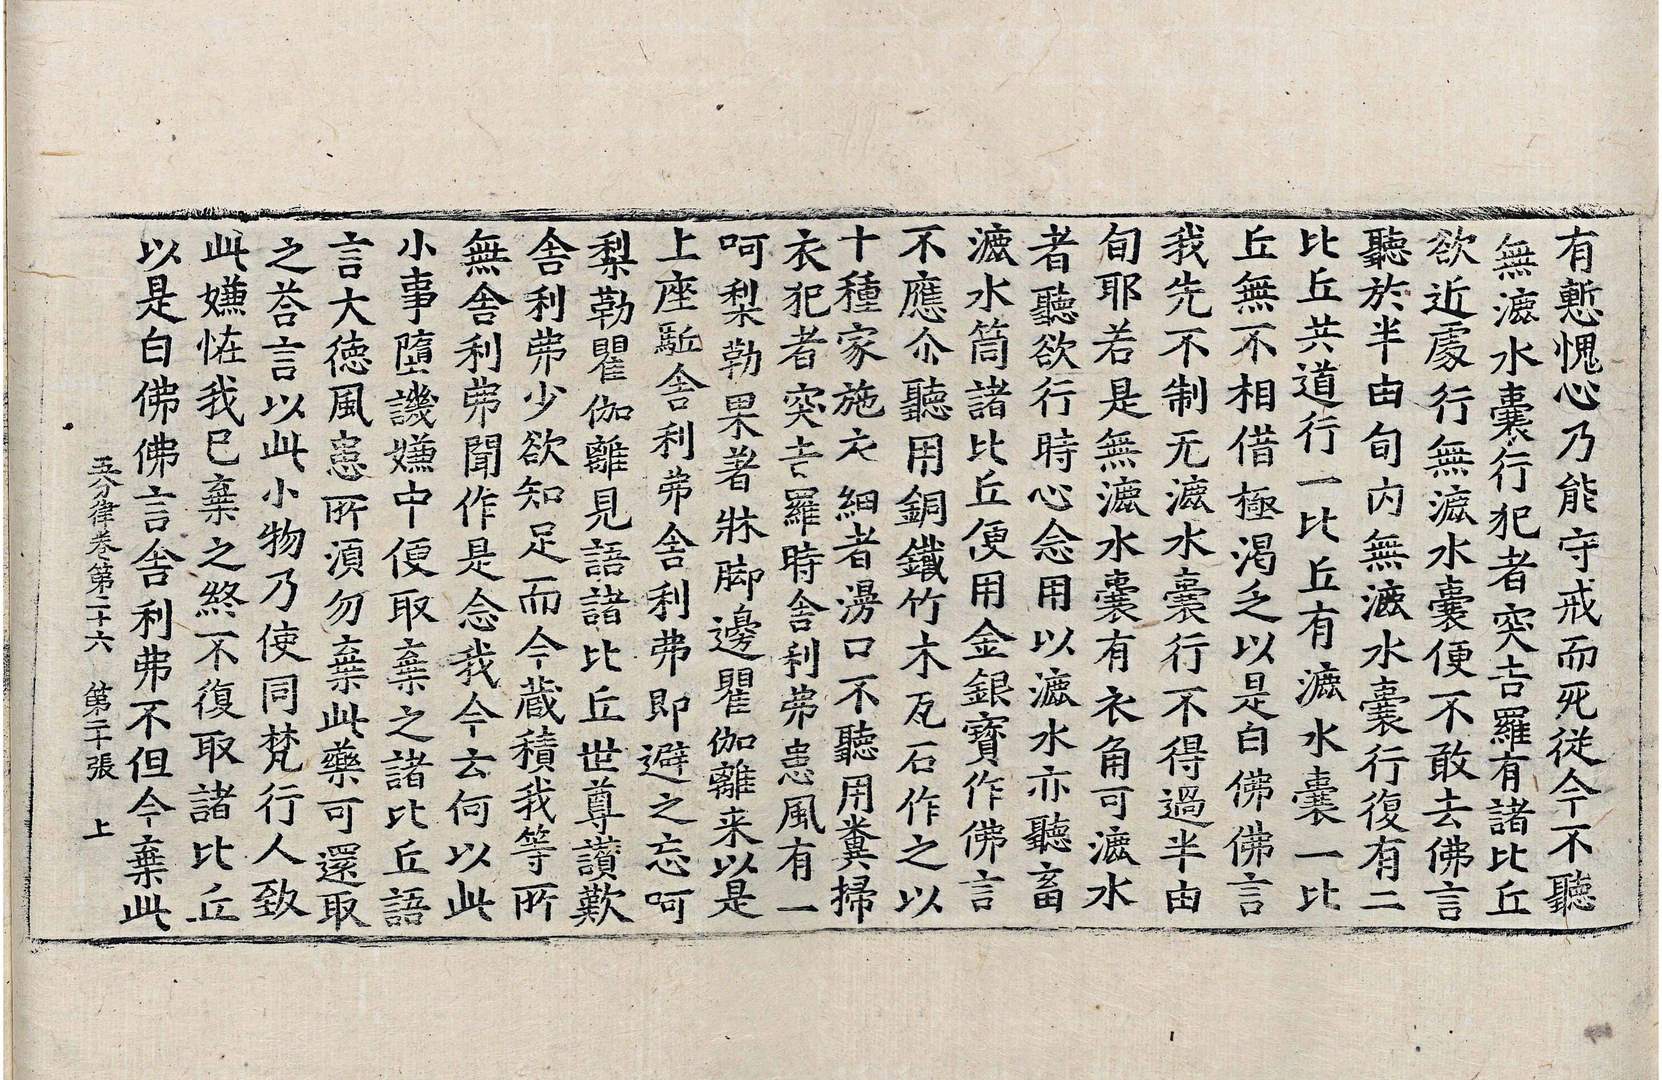 有慙愧心乃能守戒而死從今不聽
無漉水囊行犯者突吉羅有諸比丘
欲近處行無漉水囊便不敢去佛言
聽於半由旬內無漉水囊行復有二
比丘共道行一比丘有漉水囊一比
丘無不相借極渴乏以是白佛佛言
我先不制无漉水囊行不得過半由
旬耶若是無漉水囊有衣角可漉水
者聽欲行時心念用以漉水亦聽畜
漉水筒諸比丘便用金銀寶作佛言
不應尒聽用銅鐵竹木瓦石作之以
十種家施衣細者漫口不聽用糞掃
衣犯者突吉羅時舍利弗患風有一
呵梨勒果著牀脚邊瞿伽離来以是
上座駈舍利弗舍利弗即避之忘呵
梨勒瞿伽離見語諸比丘世尊讃歎
舍利弗少欲知足而今蔵積我等所
無舍利弗聞作是念我今云何以此
小事墮譏嫌中便取棄之諸比丘語
言大徳風患所湏勿棄此藥可還取
之荅言以此小物乃使同梵行人致
此嫌恠我已棄之終不復取諸比丘
以是白佛佛言舍利弗不但今棄此
五分律卷第二十六 第二十張 上